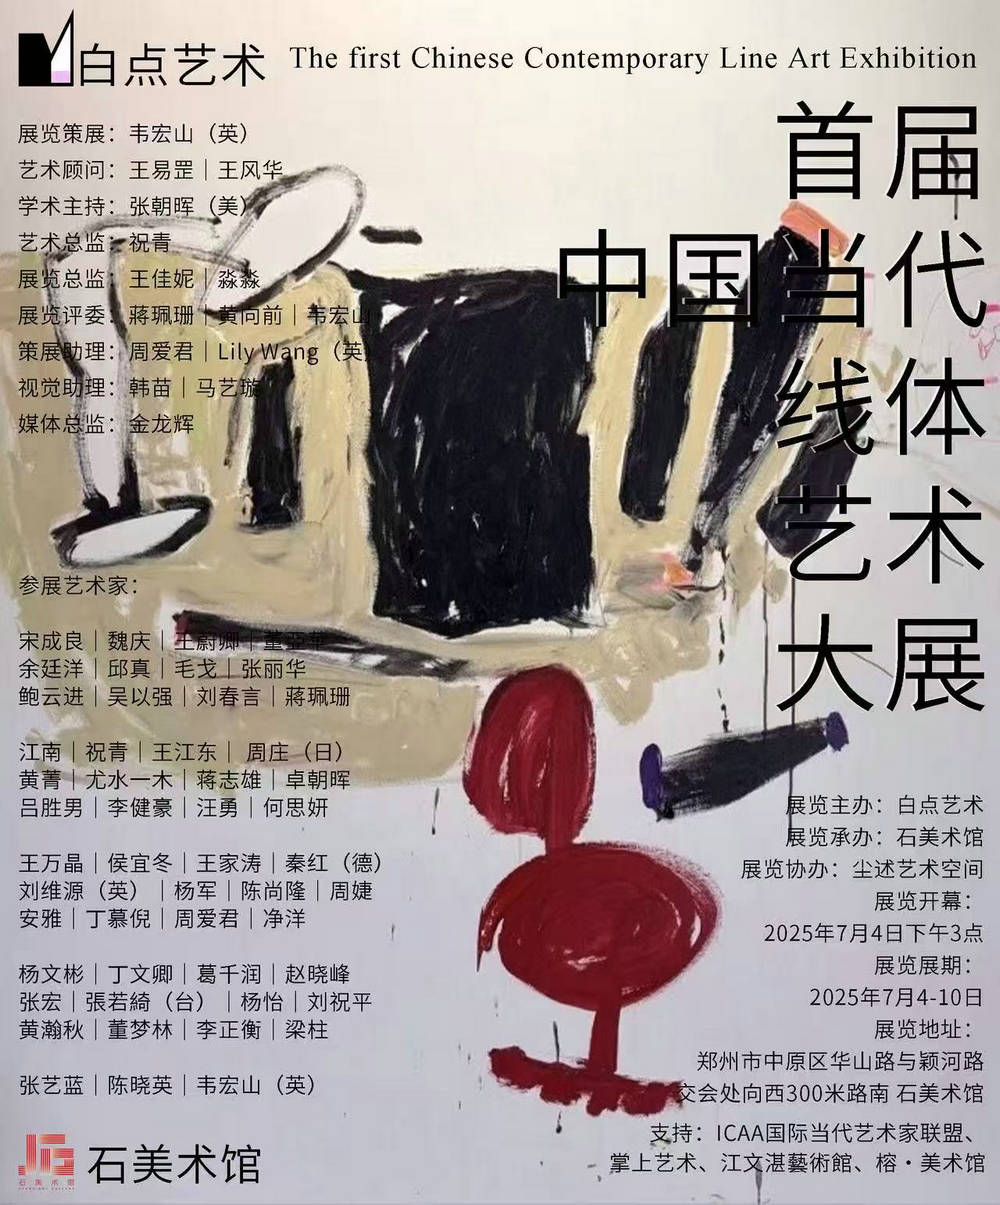 白点艺术
The first Chinese Contemporary Line Art Exhibition
首届
中国当代
线体
艺术
大展
展览策展：韦宏山（英）
艺术顾问：王易罡｜王风华
学术主持：张朝晖（美）
艺术总监：祝青
展览总监：王佳妮｜淼淼
展览评委：蒋珮珊｜黄向前｜韦宏山
策展助理：周爱君｜Lily Wang（英）
视觉助理：韩苗｜马艺璇
媒体总监：金龙辉
参展艺术家：
宋成良｜魏庆｜王蔚卿｜董亞華
余廷洋｜邱真｜毛戈｜张丽华
鲍云进｜吴以强｜刘春言｜蔣珮珊
江南｜祝青｜王江东｜ 周庄（日）
黄菁｜尤水一木｜蒋志雄｜卓朝晖
吕胜男｜李健豪｜汪勇｜何思妍
王万晶｜侯宜冬｜王家涛｜秦红（德）
刘维源（英）｜杨军｜陈尚隆｜周婕
安雅｜丁慕倪｜周爱君｜净洋
杨文彬｜丁文卿｜葛千润｜赵晓峰
张宏｜張若綺（台）｜杨怡｜刘祝平
黄瀚秋｜董梦林｜李正衡｜梁柱
张艺蓝｜陈晓英｜韦宏山（英）
展览主办：白点艺术
展览承办：石美术馆
展览协办：尘述艺术空间
展览开幕：
2025年7月4日下午3点
展览展期：
2025年7月4-10日
展览地址：
郑州市中原区华山路与颖河路
交会处向西300米路南 石美术馆
支持：ICAA国际当代艺术家联盟、
掌上艺术、江文湛藝術館、榕·美术馆
石美术馆
石美术馆